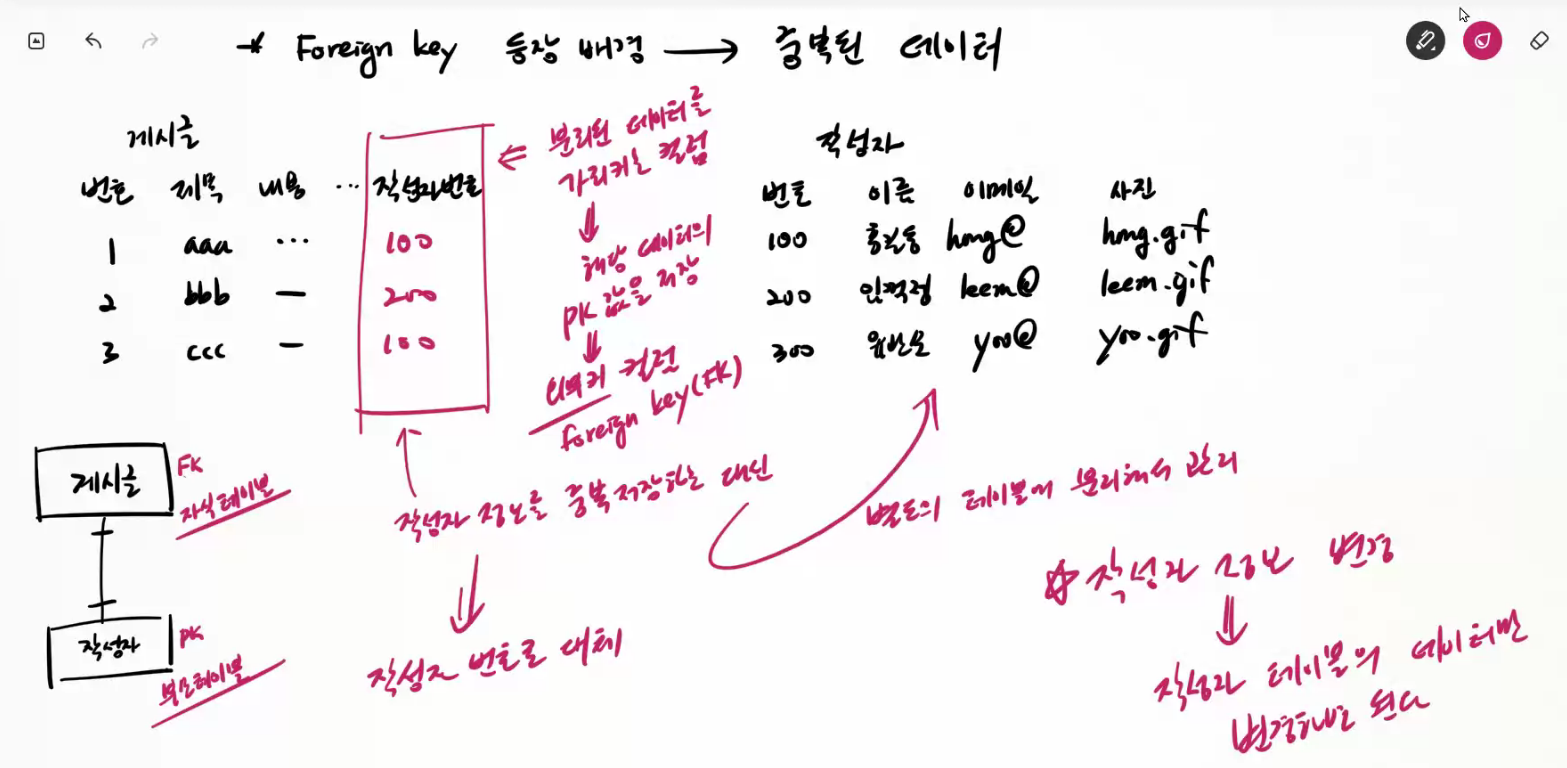 * Foreign key 등장 배경 → 중복된 데이터
게시글
번호 제목 내용 ... 작성자번호
1 aaa ... 100
2 bbb — 200
3 ccc — 100
⇐ 분리된 데이터를
가리키는 컬럼
⇓
해당 데이터의
PK 값을 저장
⇓
외래키 컬럼
foreign key(FK)
작성자
번호 이름 이메일 사진
100 홍길동 hong@ hong.gif
200 임꺽정 leem@ leem.gif
300 유관순 yoo@ yoo.gif
게시글 FK
자식테이블
작성자 PK
부모테이블
작성자 정보를 중복저장하는 대신
⇓
작성자 번호로 대체
별도의 테이블에 분리해서 관리
☆ 작성자 정보 변경
⇓
작성자 테이블의 데이터만
변경하면 된다